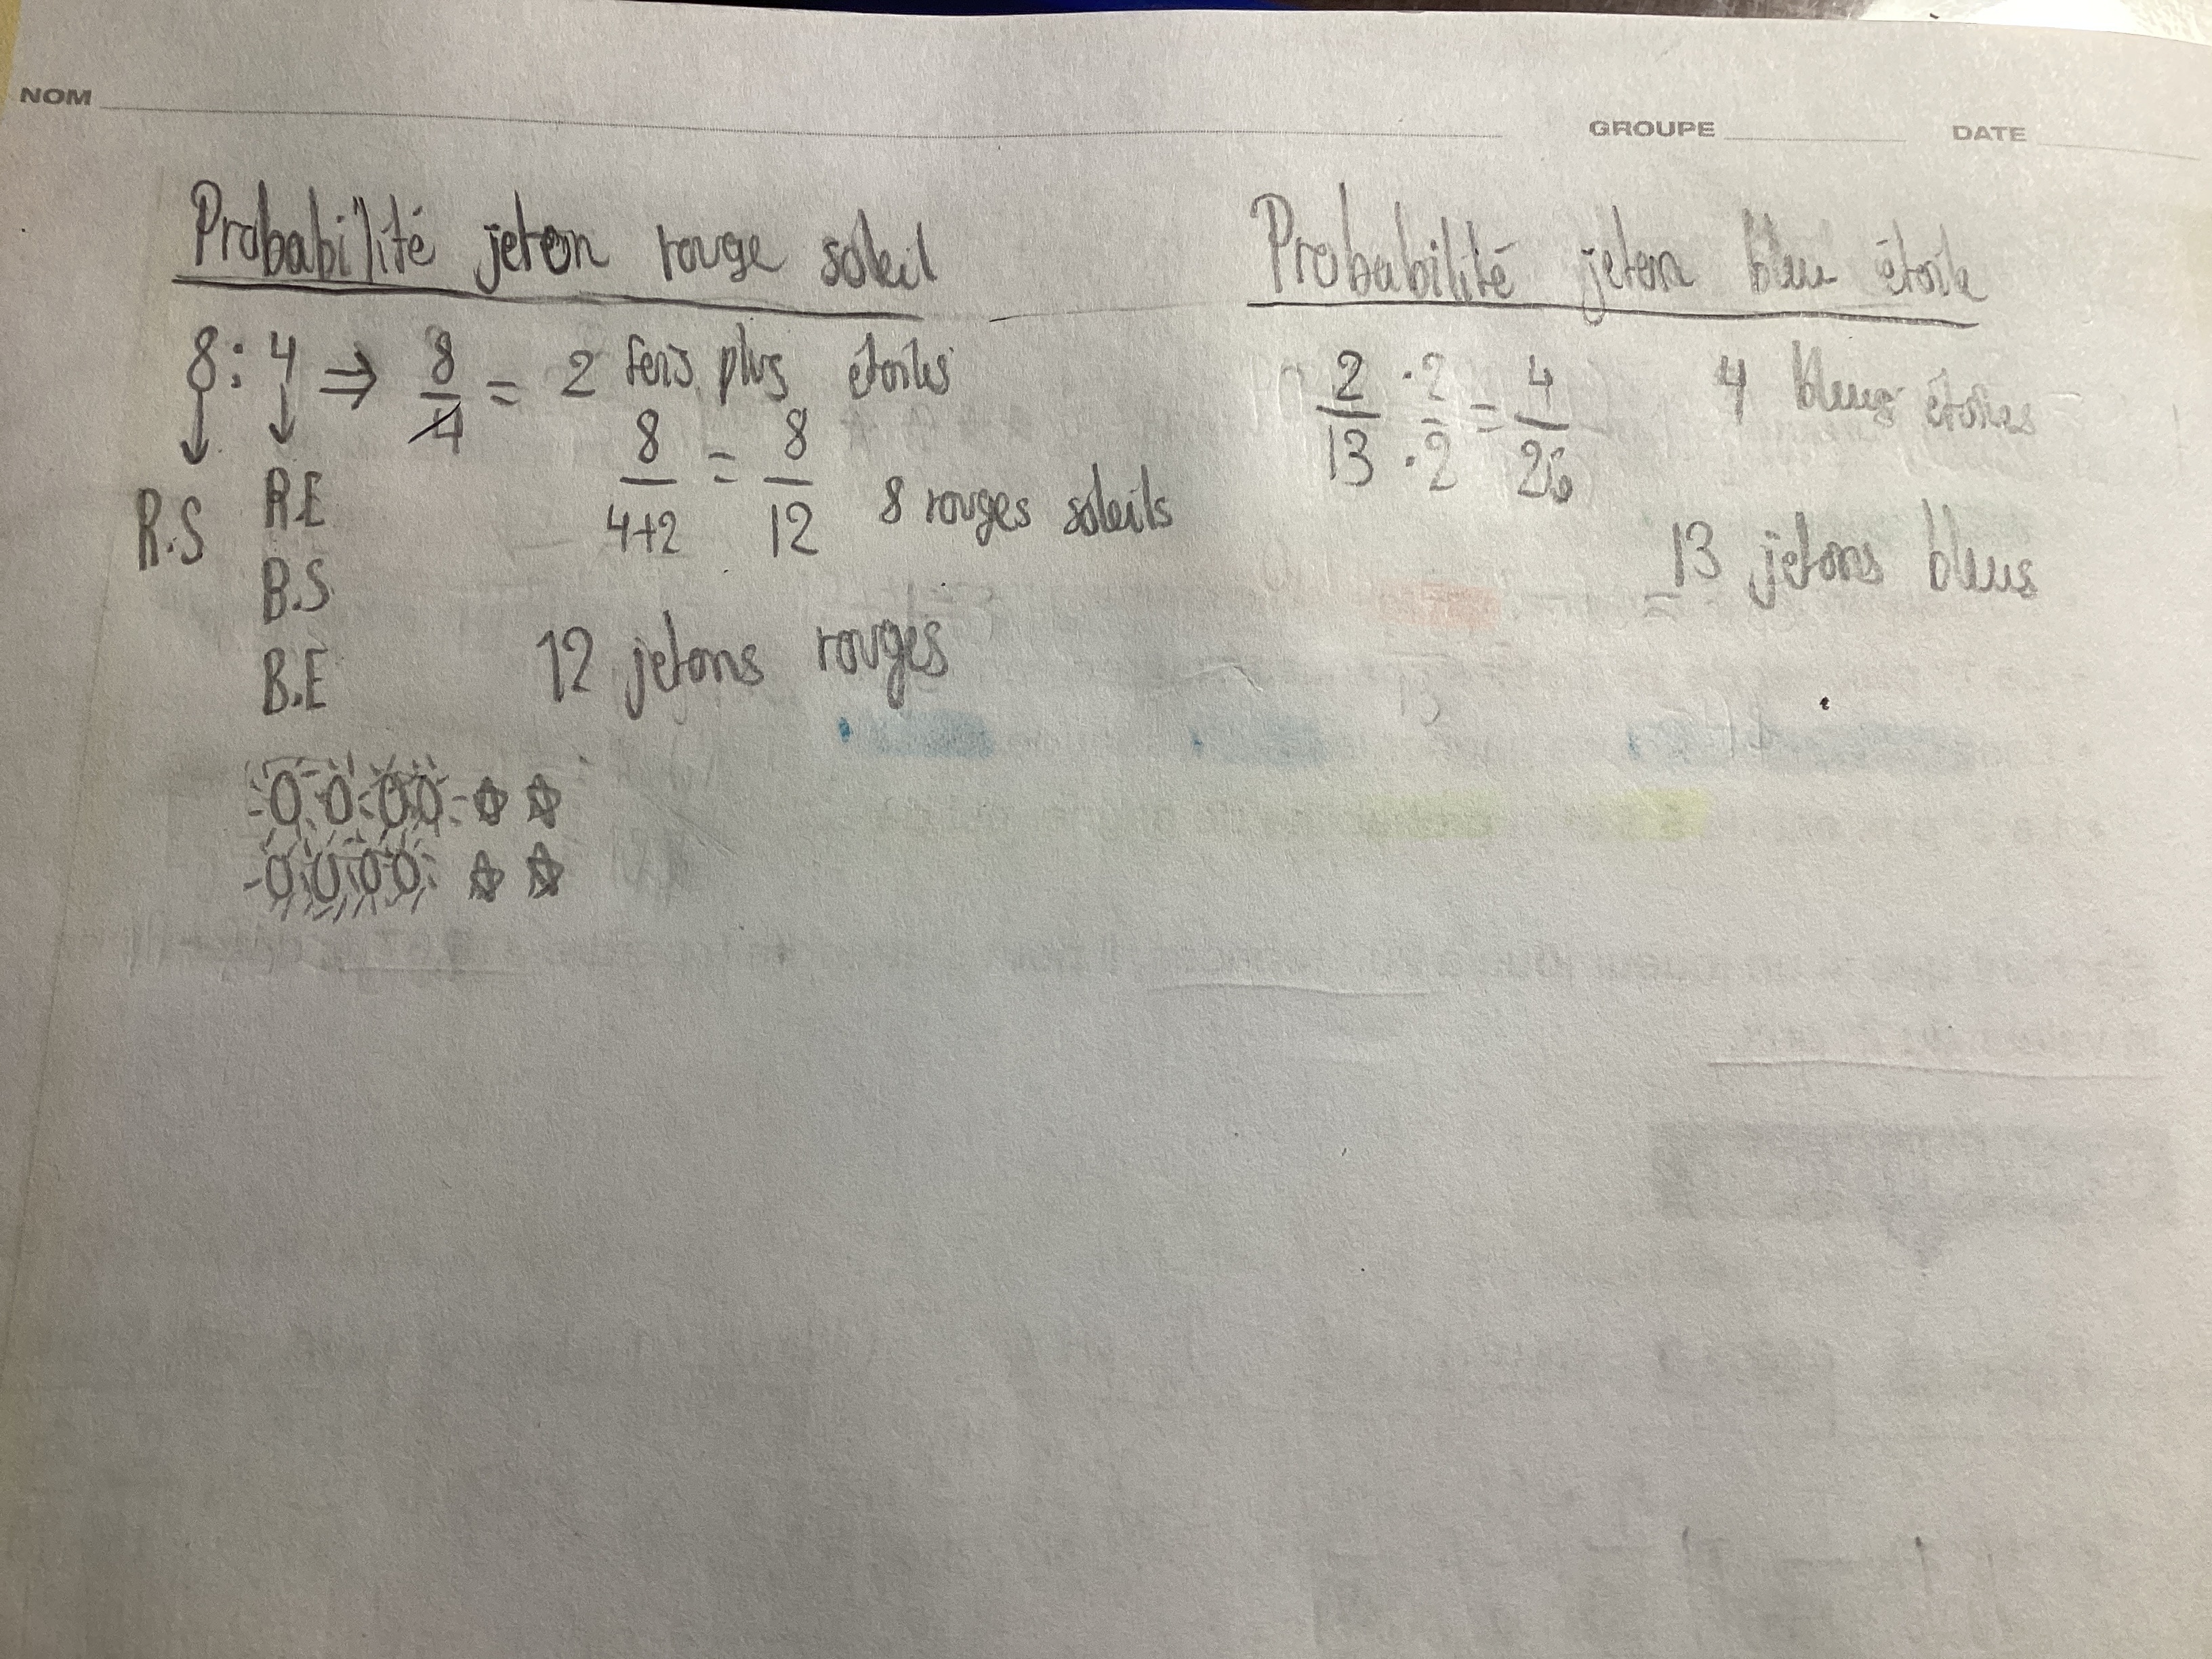 NOM
GROUPE DATE
Probabilité jeton rouge soleil
8 : 4 ⇒ 8/4 = 2 fois plus étoiles
R.S
R.E
B.S
B.E
8/4+2 = 8/12 8 rouges soleils
12 jetons rouges
Probabilité jeton bleu étoile
2/13 ·2/·2 = 4/26 4 bleus étoiles
= 13 jetons bleus